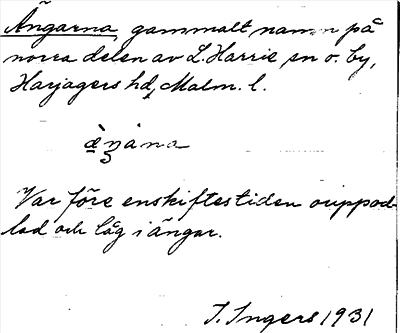 Ängarna, gammalt namn på
norra delen av L. Harrie sn o. by,
Harjagers hd, Malm. l.
Var före enskiftestiden ouppod-
lad och låg i ängar.
I. Ingers 1931